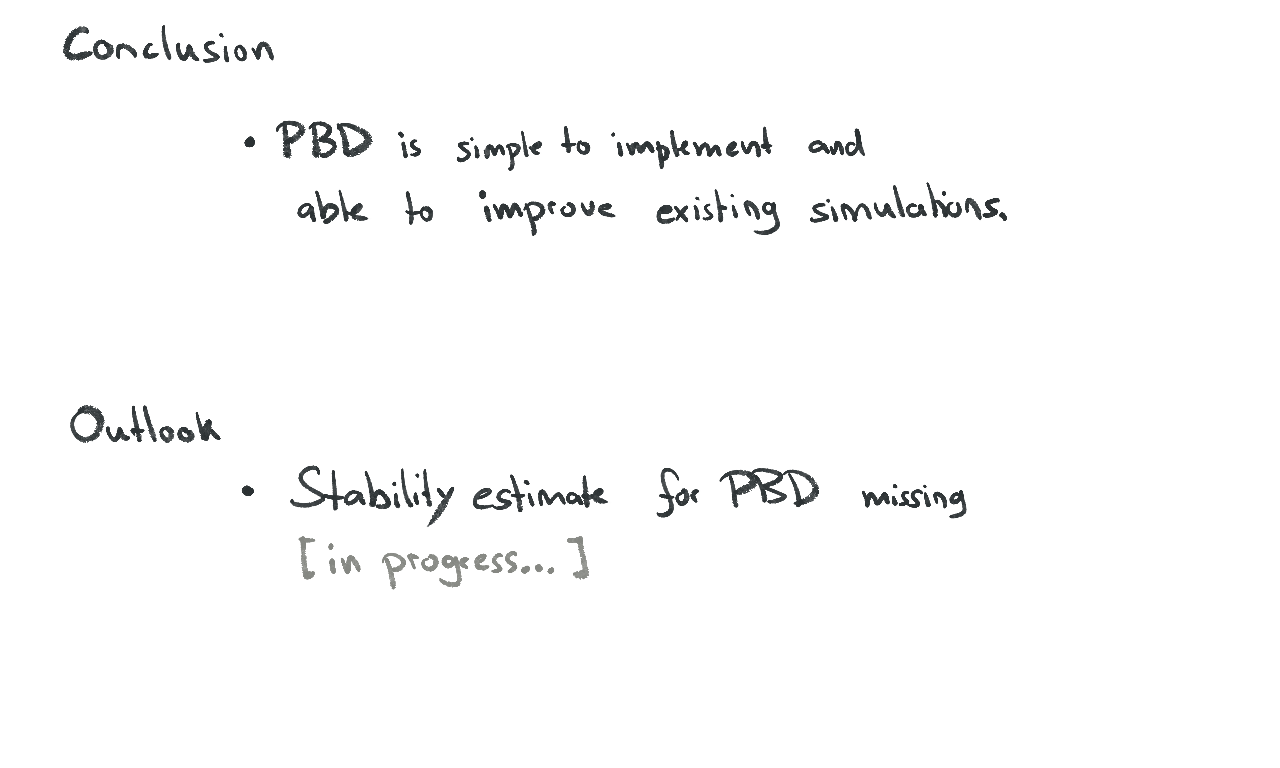 Conclusion
• PBD is simple to implement and
able to improve existing simulations.
Outlook
• Stability estimate for PBD missing
[in progress...]